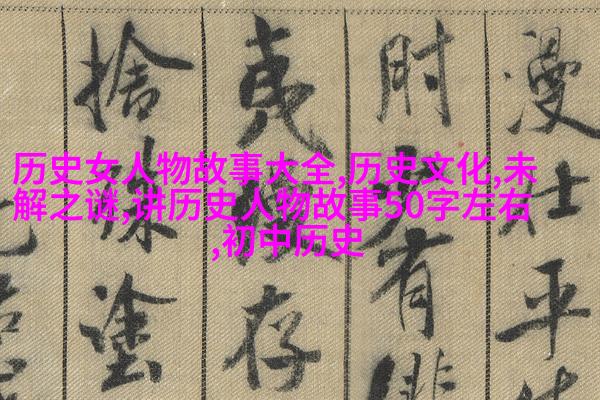 历史女人物故事大全,历史文化,未
解之谜,讲历史人物故事50字左右
,初中历史
漫仕平
肘少有
夷漫存
捨殊塗